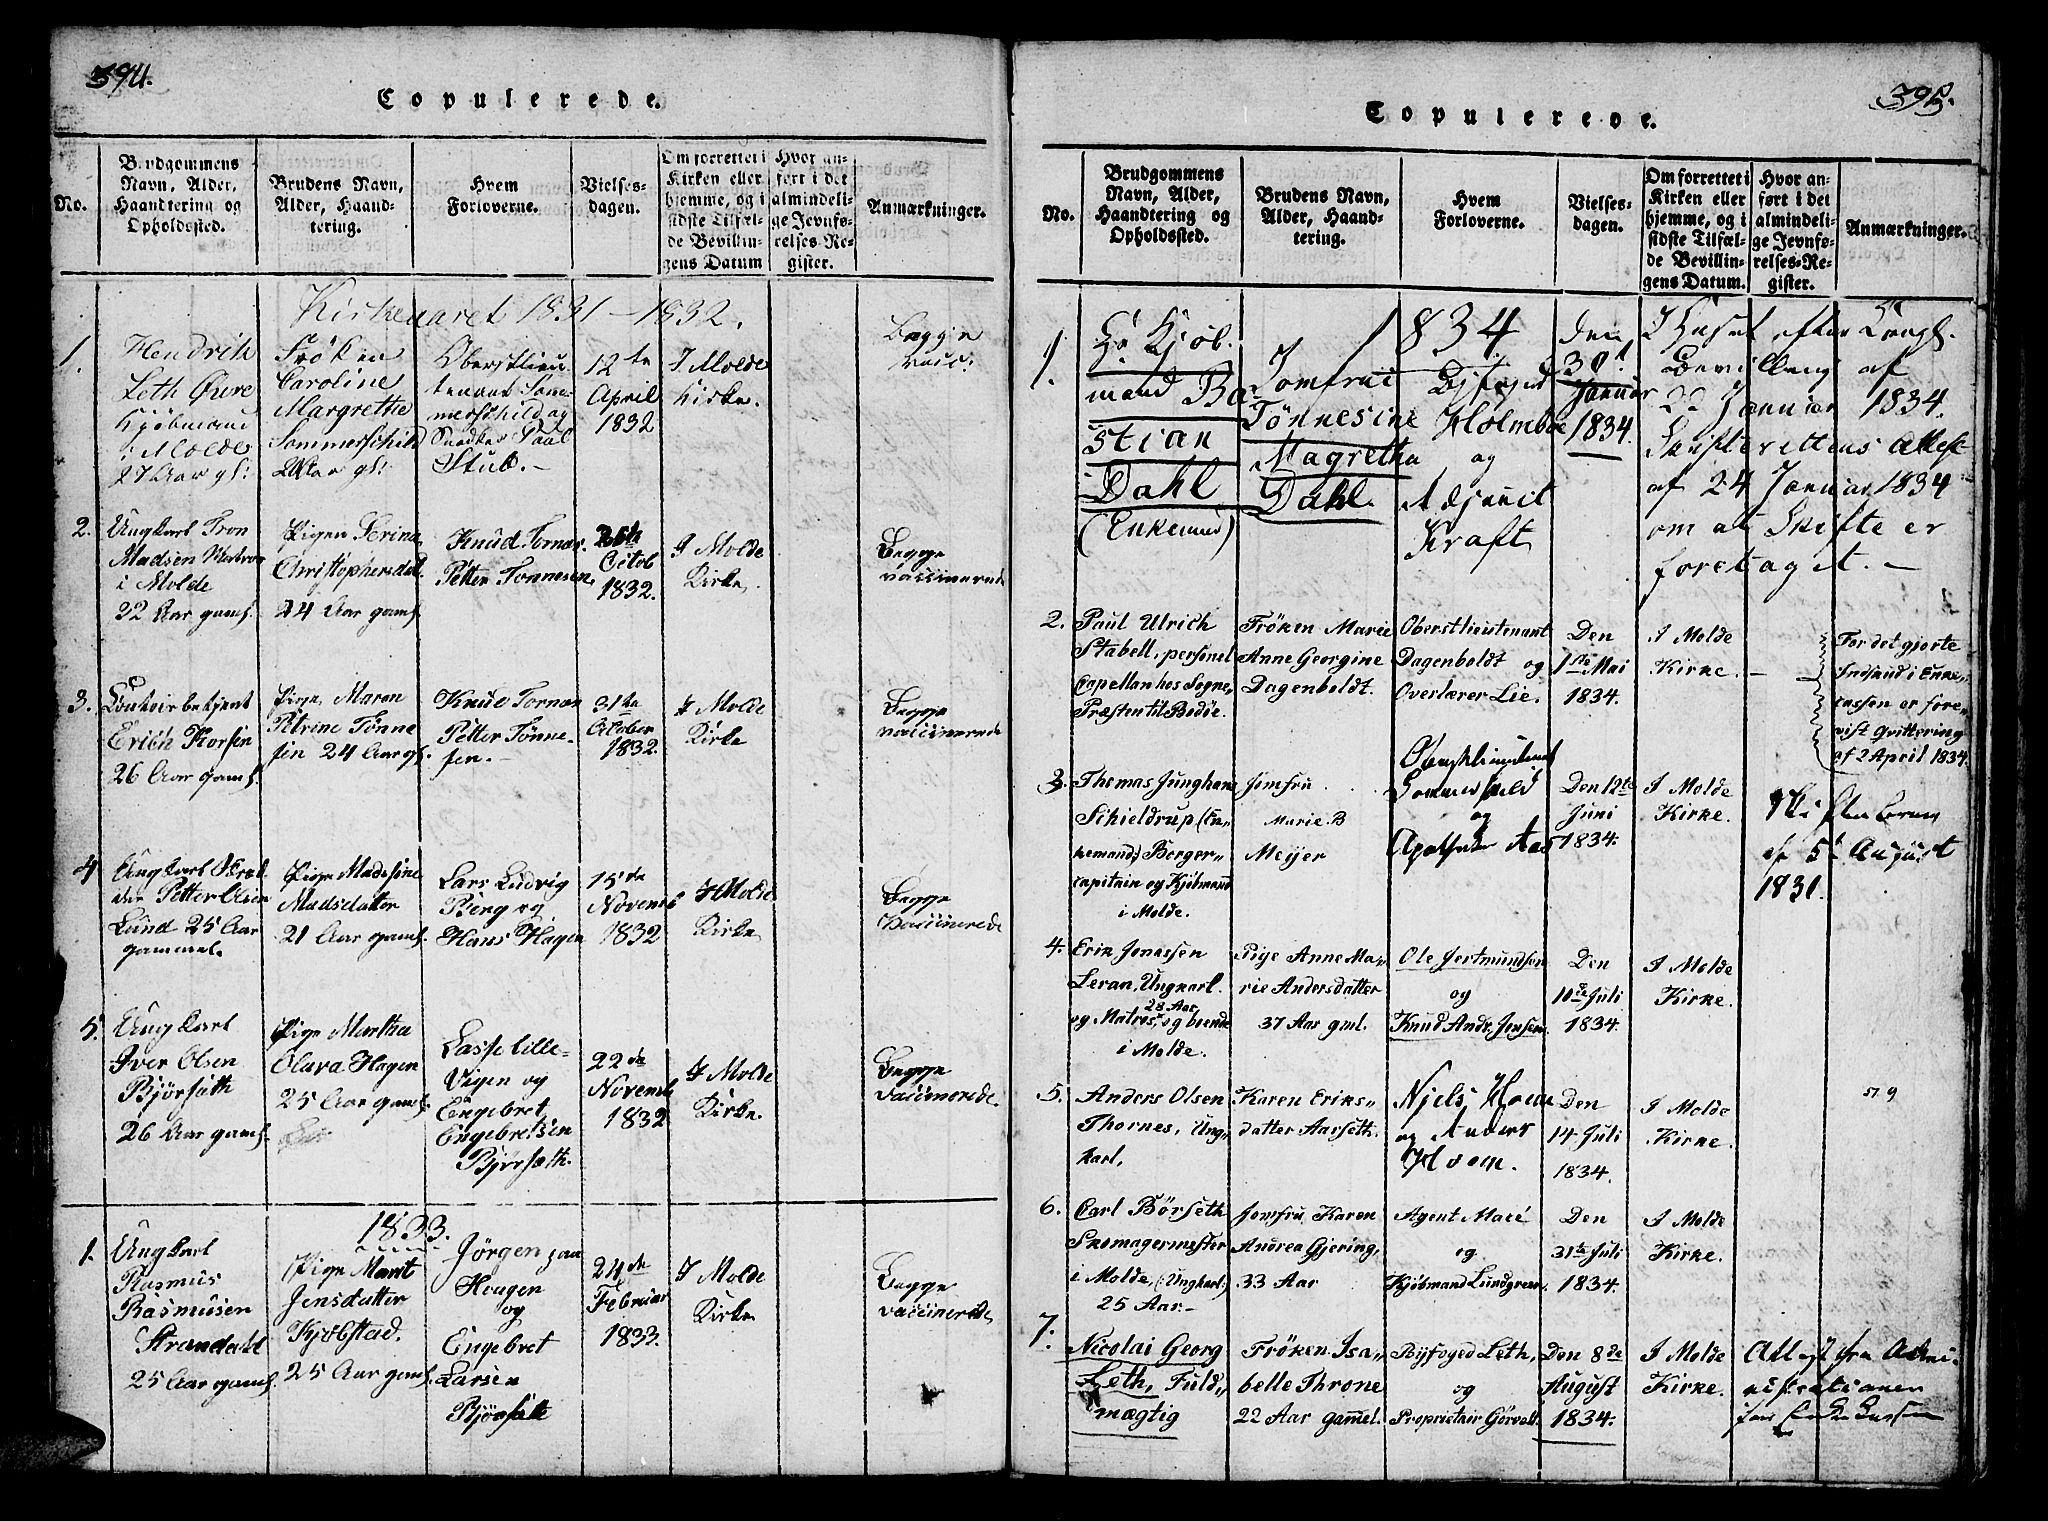 394.
Copulerede.
No.
Brudgommens
Navn, Alder,
Haandtering og
Opholdssted.
Brudens Navn,
Alder, Haand-
tering.
Hvem
Forloverne.
Vielses-
dagen.
Om forrettet i
Kirken eller
hjemme, og i
sidste Tilfæl-
de Bevillin-
gens Datum
Hvor an-
ført i det
almindeli-
ge Jevnfø-
relses-Re-
gister.
Anmærkninger.
Kirkeaaret 1831-1832.
1.
Hendrik
Leth Owre
Kjøbmand
i Molde
27 Aar gl:
Frøken
Caroline
Margrethe
Sommerschild
Aar gl:
Oberstlieu
tenant Som-
merschild og
Snedker Paal
Stub.-
12te
April
1832
I Molde
Kirke.
Begge
vacc:
2.
Ungkarl Tron
Madsen
i Molde
22 Aar gaml.
Pigen Serina
Christophersdat.
24 Aar gaml.
Knud Tornæs
Petter Tønnesen
Octob
1832.
I Molde
Kirke.
Begge
vaccinerede
3.
Contoirbetjent
Erich Korsen
26 Aar gaml.
Pige Maren
Petrine Tønne
sen 24 Aar gl.
Knud Tornæs
Petter Tønne-
sen.-
31te
October
1832.
I Molde
Kirke
Begge
vaccinerede
4
Ungkarl
Petter Olsen
Lund 25 Aar
gammel.
Pige Madesine
Madsdatter
21 Aar gaml.
Lars Ludvig
Berg og
Hans Hagen
15de
Novemb
1832
I Molde
Kirke
Begge
Vaccinerede
5.
Ungkarl
Iver Olsen
Bjørsæth
26 Aar gaml.
Pige Martha
Olava Hagen
25 Aar gaml.
Lasse Lille-
Vigen og
Engebret
Engebretsen
Bjørsæth.
22de
Novemb
1832
I Molde
Kirke.
Begge
Vaccinerede.
1833.
1.
Ungkarl
Rasmus
Rasmusen
Strandald
25 Aar gaml.
Pige Marit
Jensdatter
Kjøbstad.
25 Aar gaml.
Jørgen paa
Hougen
og
Engebret
Larsen
Bjørsætt
24de
Februar
1833.
I Molde
Kirke
Begge
vaccinerede
395.
Copulerede.
No.
Brudgommens
Navn, Alder,
Haandtering og
Opholdssted.
Brudens Navn,
Alder, Haand-
tering.
Hvem
Forloverne.
Vielses-
dagen.
Om forrettet i
Kirken eller
hjemme, og i
sidste Tilfæl-
de Bevillin-
gens Datum.
Hvor an-
ført i det
almindeli-
ge Jevnfø-
relses-Re-
gister.
Anmærkninger.
1834
1.
Hr Kjøb.
mand Ba-
stian
Dahl
(Enkemand)
Jomfrue
Tønnesine
Magretha
Dahl.
Byfoged
Holmboe
og
Adjunct
Kraft
den
30t
Januar
1834.
I Huset efter Kongl.
Bevilling af
22 Januar 1834.
Skifterettens Attest
af 24 Januar 1834
om at Skifte er
foretaget. -
2.
Paul Ulrich
Stabell, personel
Capellan hos Sogne,,
Præsten til Bodøe.
Frøken Marie
Anne Georgine
Dagenboldt.
Oberstlieutenant
Dagenboldt og
Overlærer Lie.
Den
1ste Mai
1834.
I Molde
Kirke.
For det gjorte
Indskud i Enke,,
cassen er fore,,
vist Qvittering
af 2 April 1834.
3.
Thomas Junghans
Schieldrup, (En,,
kemand) Borger,,
capitain og Kjøbmand
i Molde.
Jomfru
Marie. B
Meijer
Oberstlieutenant
Sommerschild
og
Apotheker Aas
Den 12te
Juni
1834.
I Molde
Kirke.
af 5t August
1831.
4.
Erik Jonassen
Leran, Ungkarl.
28 Aar
og Matros, og boende
i Molde.
Pige Anne Ma,,
rie Andersdatter
37 Aar gml.
Ole Jertmundsen
og
Knud Andr. Jensen.
Den
10de Juli
1834.
I Molde
Kirke.
5.
Anders Olsen
Thornes, Ung,,
karl.
Karen Eriks,,
datter Aarseth.
Njels Hoem
og Anders
Hoem.
Den
14 Juli
1834.
I Molde
Kirke.
6.
Carl Børseth
Skomagermester
i Molde, (:Ungkarl:)
25 Aar.-
Jomfru Karen
Andrea Gjering,
33 Aar
Agent Macé
og
Kjøbmand Lundgreen.
Den
31te Juli
1834.
I Molde
Kirke.
7.
Nicolai Georg
Leth, Fuld,,
mægtig
Frøken Isa,,
belle Throne
22 Aar gammel.
Byfoged Leth,
og
Proprietair Görvell
Den 8de
August
1834.
I Molde
Kirke.
Attest fra Admi-
nistrationen
for Enke Cassen